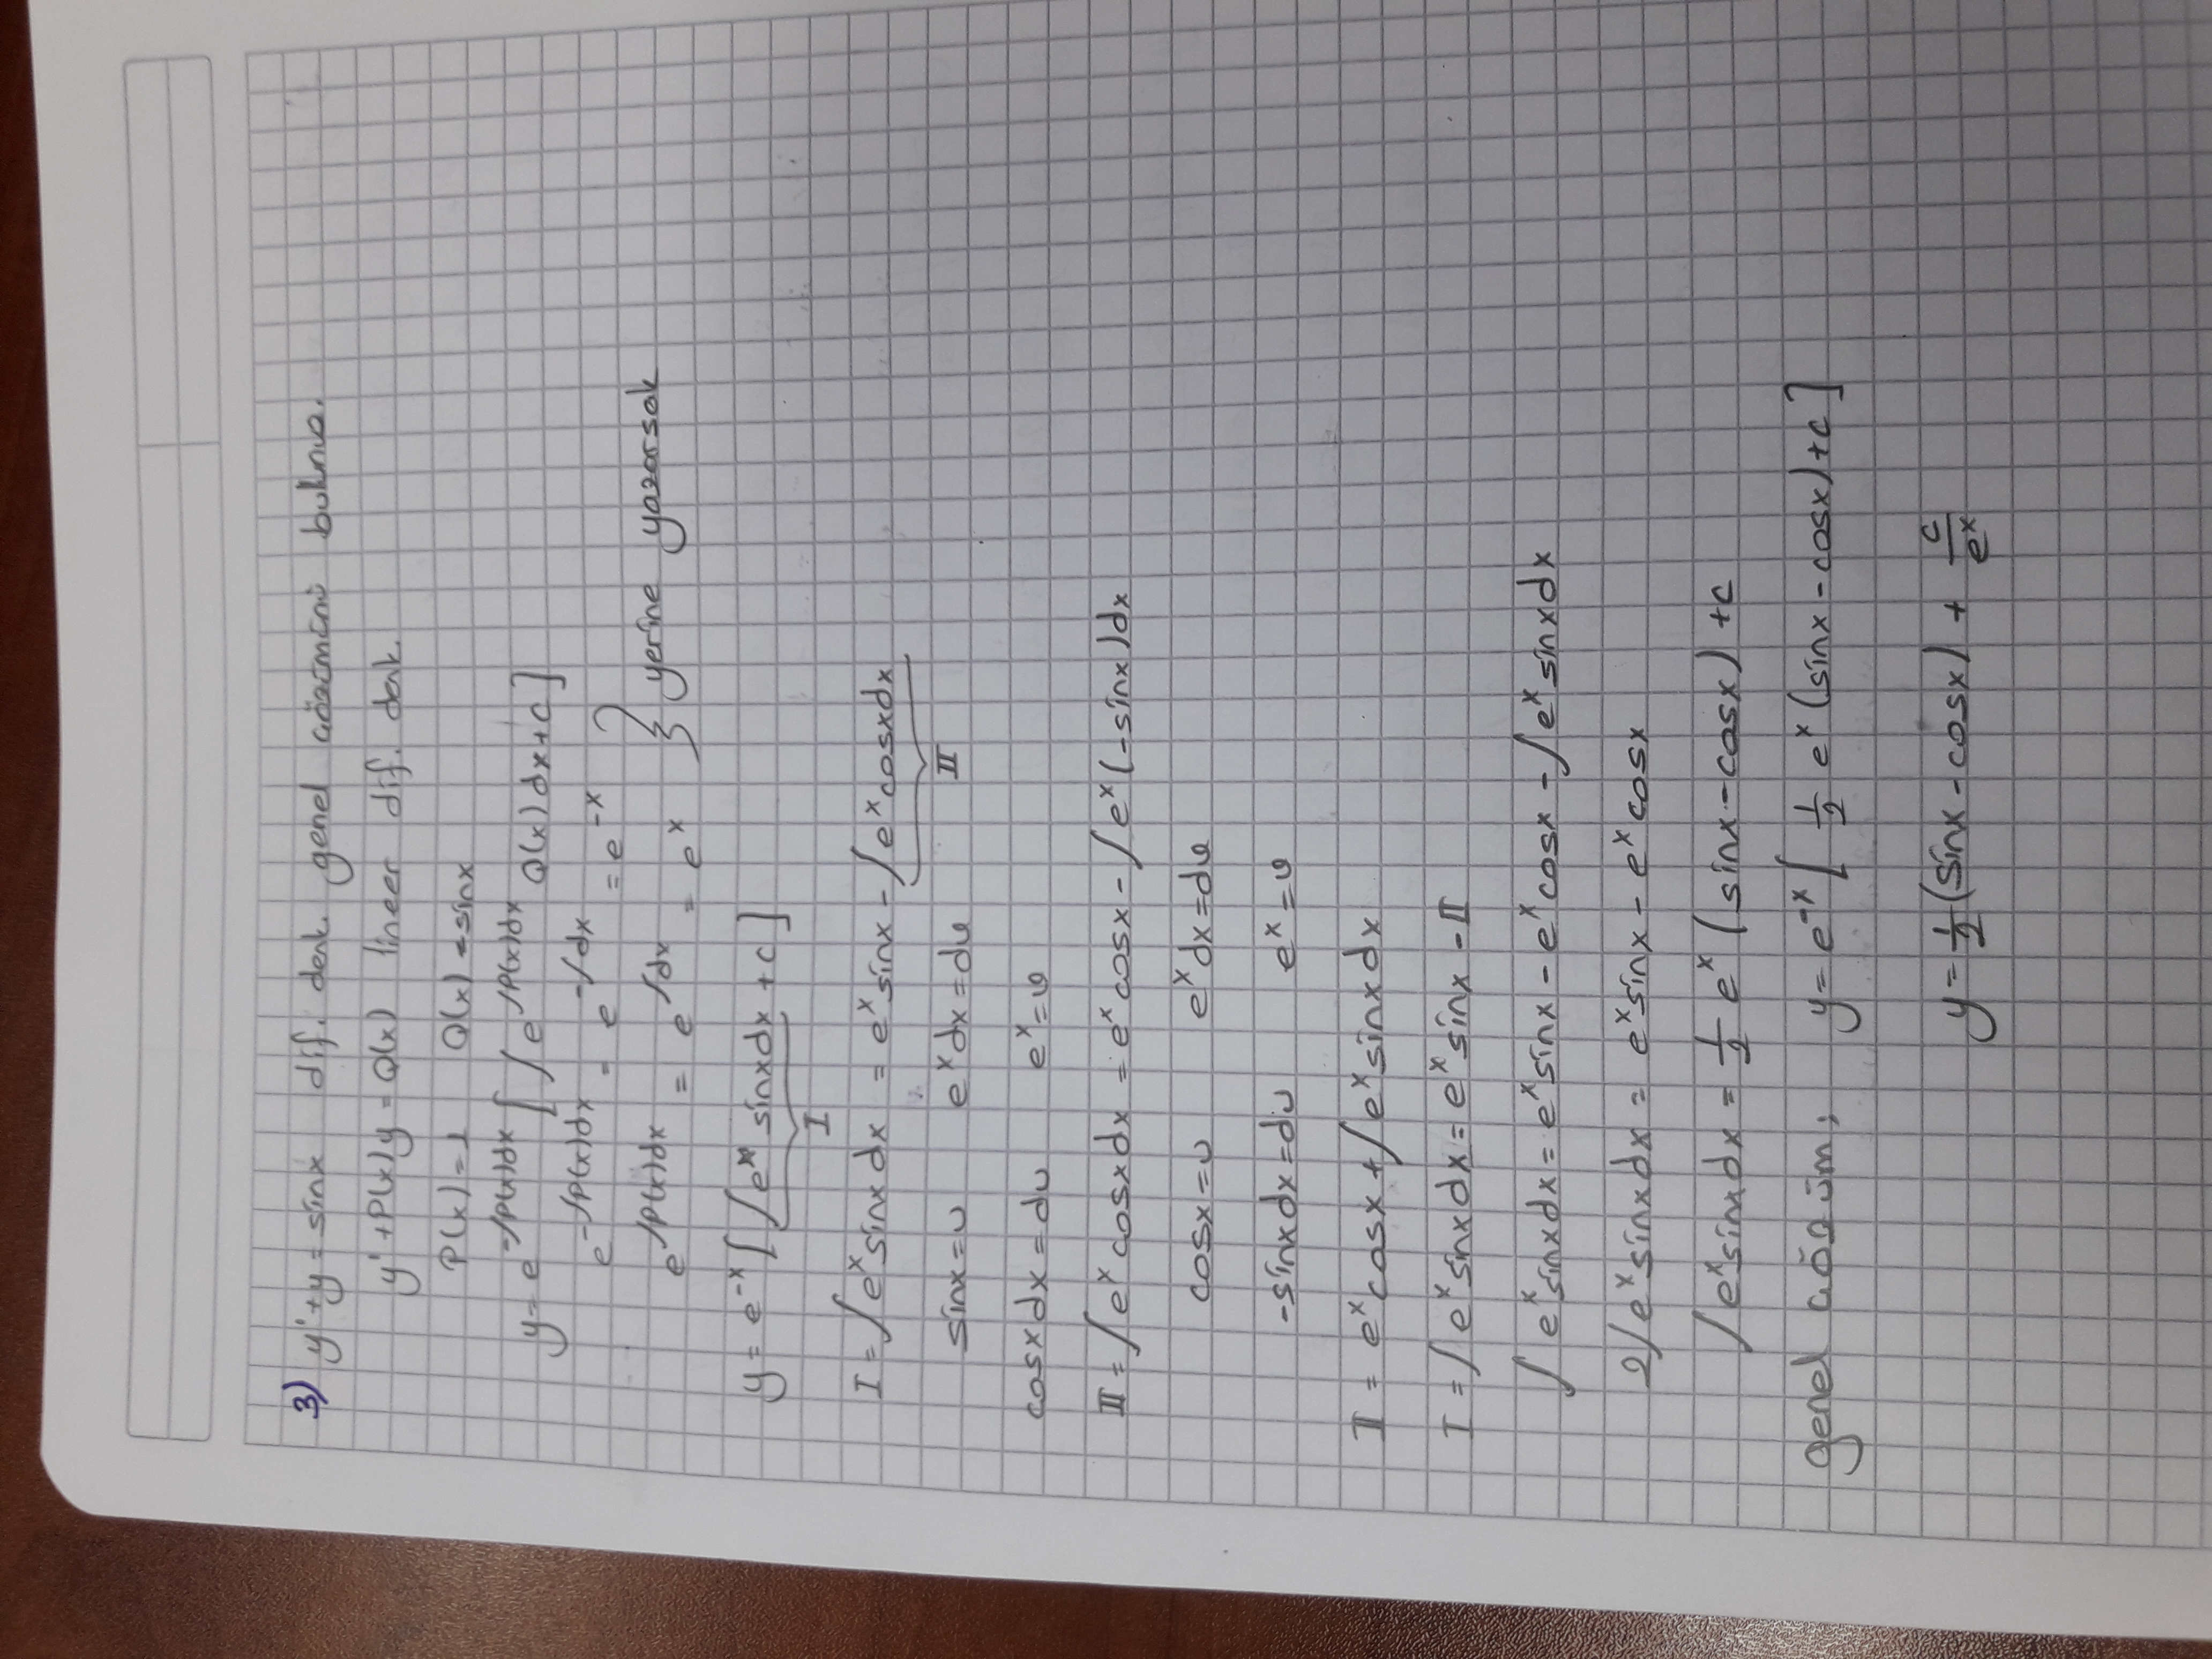 3) y' + y = sinx dif. denk. genel çözümünü bulunuz.
y' + P(x)y = Q(x) lineer dif. denk.
P(x) = 1 Q(x) = sinx
y = e^{-∫P(x)dx} [ ∫e^{∫P(x)dx} Q(x)dx + c ]
e^{-∫P(x)dx} = e^{-∫dx} = e^{-x}
e^{∫P(x)dx} = e^{∫dx} = e^x } yerine yazarsak
y = e^{-x} [ ∫e^x sinxdx + c ]
I
I = ∫e^x sinx dx = e^x sinx - ∫e^x cosxdx
II
sinx = u e^x dx = dv
cosx dx = du e^x = v
II = ∫e^x cosxdx = e^x cosx - ∫e^x (-sinx)dx
cosx = u e^x dx = dv
-sinxdx = du e^x = v
II = e^x cosx + ∫e^x sinxdx
I = ∫e^x sinxdx = e^x sinx - II
∫e^x sinxdx = e^x sinx - e^x cosx - ∫e^x sinxdx
2∫e^x sinxdx = e^x sinx - e^x cosx
∫e^x sinxdx = 1/2 e^x (sinx - cosx) + c
genel çözüm; y = e^{-x} [ 1/2 e^x (sinx - cosx) + c ]
y = 1/2 (sinx - cosx) + c/e^x